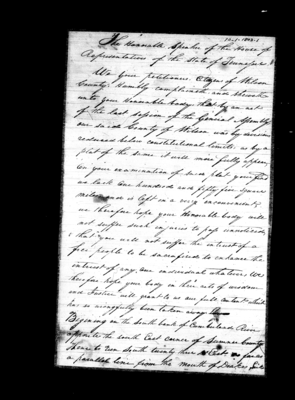 The Honorable Speaker of the House of
Representatives of the State of Tennessee
We your petitioners Citizens of Wilson
County Humbly complaineth and sheweth
unto your Honorable body that by an act
of the last session of the General Assembly
our said County of Wilson was by
reduced below constitutional limits as by a
plat of the same it will more fully appear
on your examination of such plat you find
us lack one hundred and fifty five square
miles and is left in a very
we therefore hope your Honorable body will
not suffer such to pass unnoticed
& that you will not suffer the interest of a
free people to be sacrificed to enhance the
interest of any one individual whatever. We
therefore hope you body in their acts of wisdom
and Justice will grant to us our full
has so wrongfully been taken away
Beginning on the south bank of Cumberland River
opposite the south East corner of Sumner County
thence to run South twenty
a parallel line from the mouth of